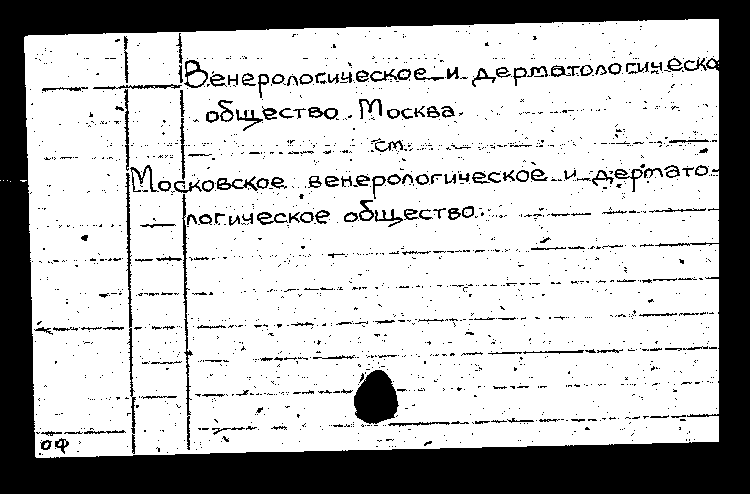 Венерологическое и дерматологическо
общество. Москва.
см.
Московское венерологическое и дермато-
логическое общество.
ОФ